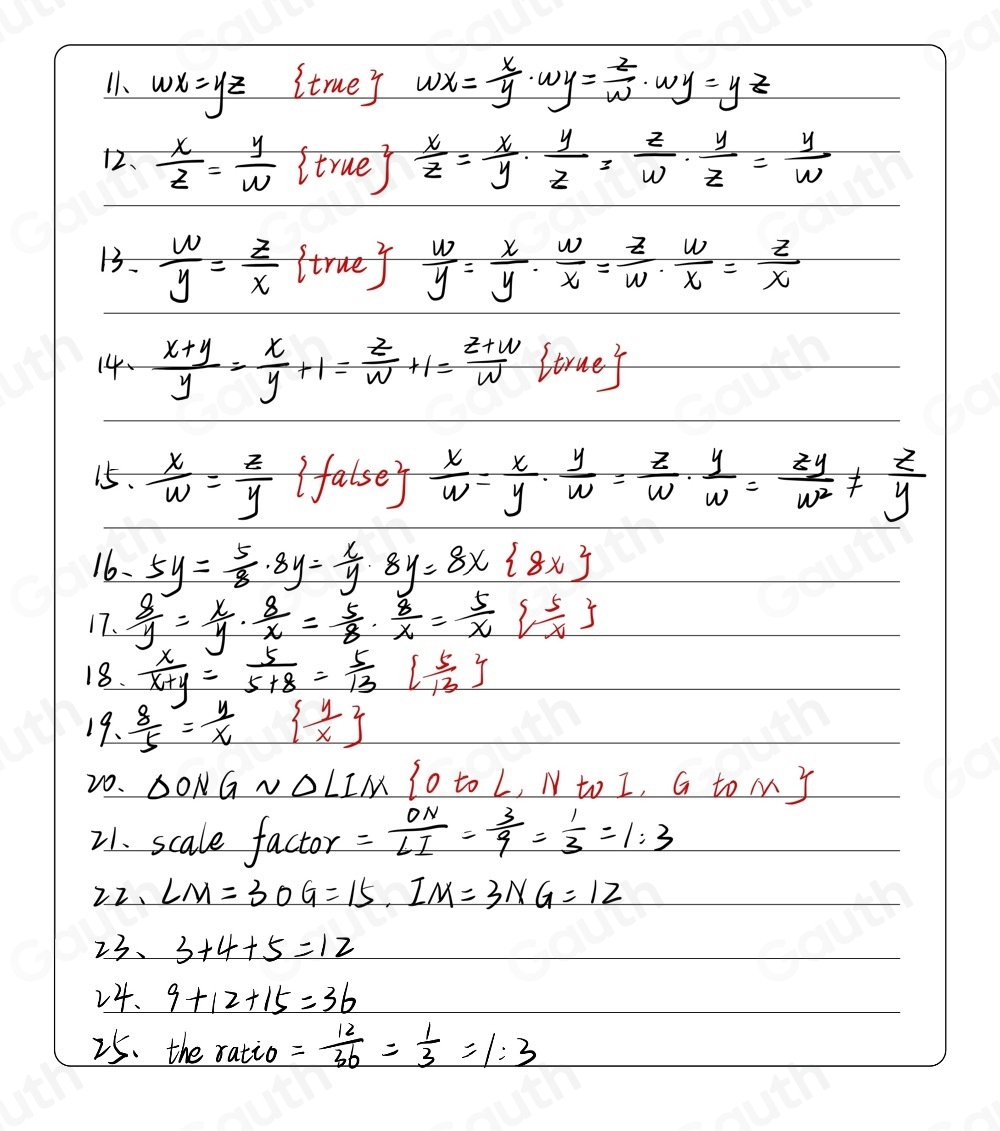 11、 wx=yz {true} wx = x/y · wy = z/w · wy = yz
12、 x/z = y/w {true} x/z = x/y · y/z = z/w · y/z = y/w
13- w/y = z/x {true} w/y = x/y · w/x = z/w · w/x = z/x
14、 x+y/y = x/y + 1 = z/w + 1 = z+w/w {true}
15、 x/w = z/y {false} x/w = x/y · y/w = z/w · y/w = zy/w² ≠ z/y
16、 5y = 5/8 · 8y = x/y · 8y = 8x {8x}
17. 8/y = x/y · 8/x = 5/8 · 8/x = 5/x {5/x}
18. x/x+y = 5/5+8 = 5/13 {5/13}
19、 8/5 = y/x {y/x}
20、 △ONG ~ △LIM {O to L, N to I, G to M}
21、 scale factor = ON/LI = 3/9 = 1/3 = 1:3
22、 LM = 3OG = 15, IM = 3NG = 12
23、 3+4+5=12
24、 9+12+15=36
25、 the ratio = 12/36 = 1/3 = 1:3
Gauth